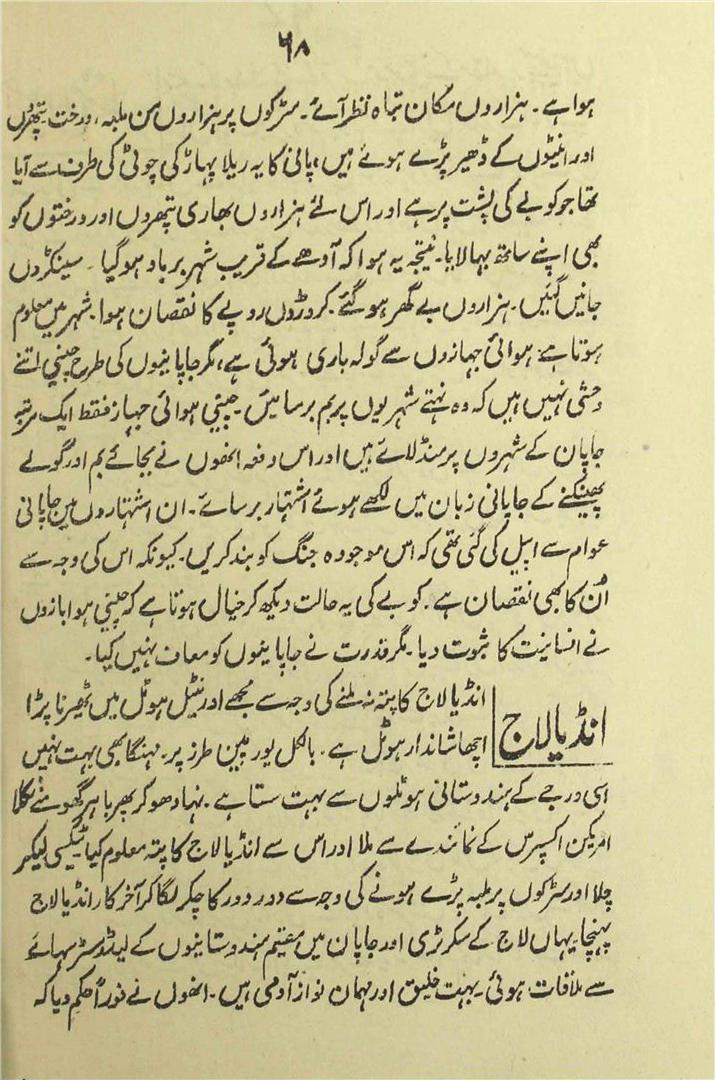 ۶۸
ہوا ہے۔ ہزاروں مکان تباہ نظر آئے۔ سڑکوں پر ہزاروں من ملبہ، درخت پتھروں
اور اینٹوں کے ڈھیر پڑے ہوئے ہیں، پانی کا یہ ریلا پہاڑ کی چوٹی کی طرف سے آیا
تھا جو کوبے کی پشت پر ہے اور اس لئے ہزاروں بھاری پتھروں اور درختوں کو
بھی اپنے ساتھ بہا لایا۔ نتیجہ یہ ہوا کہ آدھے کے قریب شہر برباد ہو گیا۔ سینکڑوں
جانیں گئیں۔ ہزاروں بے گھر ہو گئے۔ کروڑوں روپے کا نقصان ہوا۔ شہر میں معلوم
ہوتا ہے: ہوائی جہازوں سے گولہ باری ہوئی ہے، مگر جاپانیوں کی طرح چینی اتنے
وحشی نہیں ہیں کہ وہ نہتے شہریوں پر بم برسائیں۔ چینی ہوائی جہاز فقط ایک مرتبہ
جاپان کے شہروں پر منڈلائے ہیں اور اس دفعہ انھوں نے بجائے بم اور گولے
پھینکنے کے جاپانی زبان میں لکھے ہوئے اشتہار برسائے۔ ان اشتہاروں میں جاپانی
عوام سے اپیل کی گئی تھی کہ اس موجودہ جنگ کو بند کریں۔ کیونکہ اس کی وجہ سے
اُن کا بھی نقصان ہے۔ کوبے کی یہ حالت دیکھ کر خیال ہوتا ہے کہ چینی ہوا بازوں
نے انسانیت کا ثبوت دیا۔ مگر قدرت نے جاپانیوں کو معاف نہیں کیا۔
انڈیا لاج
انڈیا لاج کا پتہ نہ ملنے کی وجہ سے مجھے اورنٹیل ہوٹل میں ٹھیرنا پڑا
اچھا شاندار ہوٹل ہے۔ بالکل یورپین طرز پر۔ مہنگا بھی بہت نہیں
اسی درجے کے ہندوستانی ہوٹلوں سے بہت سستا ہے۔ نہا دھو کر پھر باہر گھومنے نکلا
امریکن اکسپرس کے نمائندے سے ملا اور اس سے انڈیا لاج کا پتہ معلوم کیا۔ ٹیکسی لیکر
چلا اور سڑکوں پر ملبہ پڑے ہونے کی وجہ سے دور دور کا چکر لگا کر آخر کار انڈیا لاج
پہنچا۔ یہاں لاج کے سکرٹری اور جاپان میں مقیم ہندوستانیوں کے لیڈر مسٹر سہائے
سے ملاقات ہوئی۔ بہت خلیق اور مہمان نواز آدمی ہیں۔ انھوں نے فوراً حکم دیا کہ